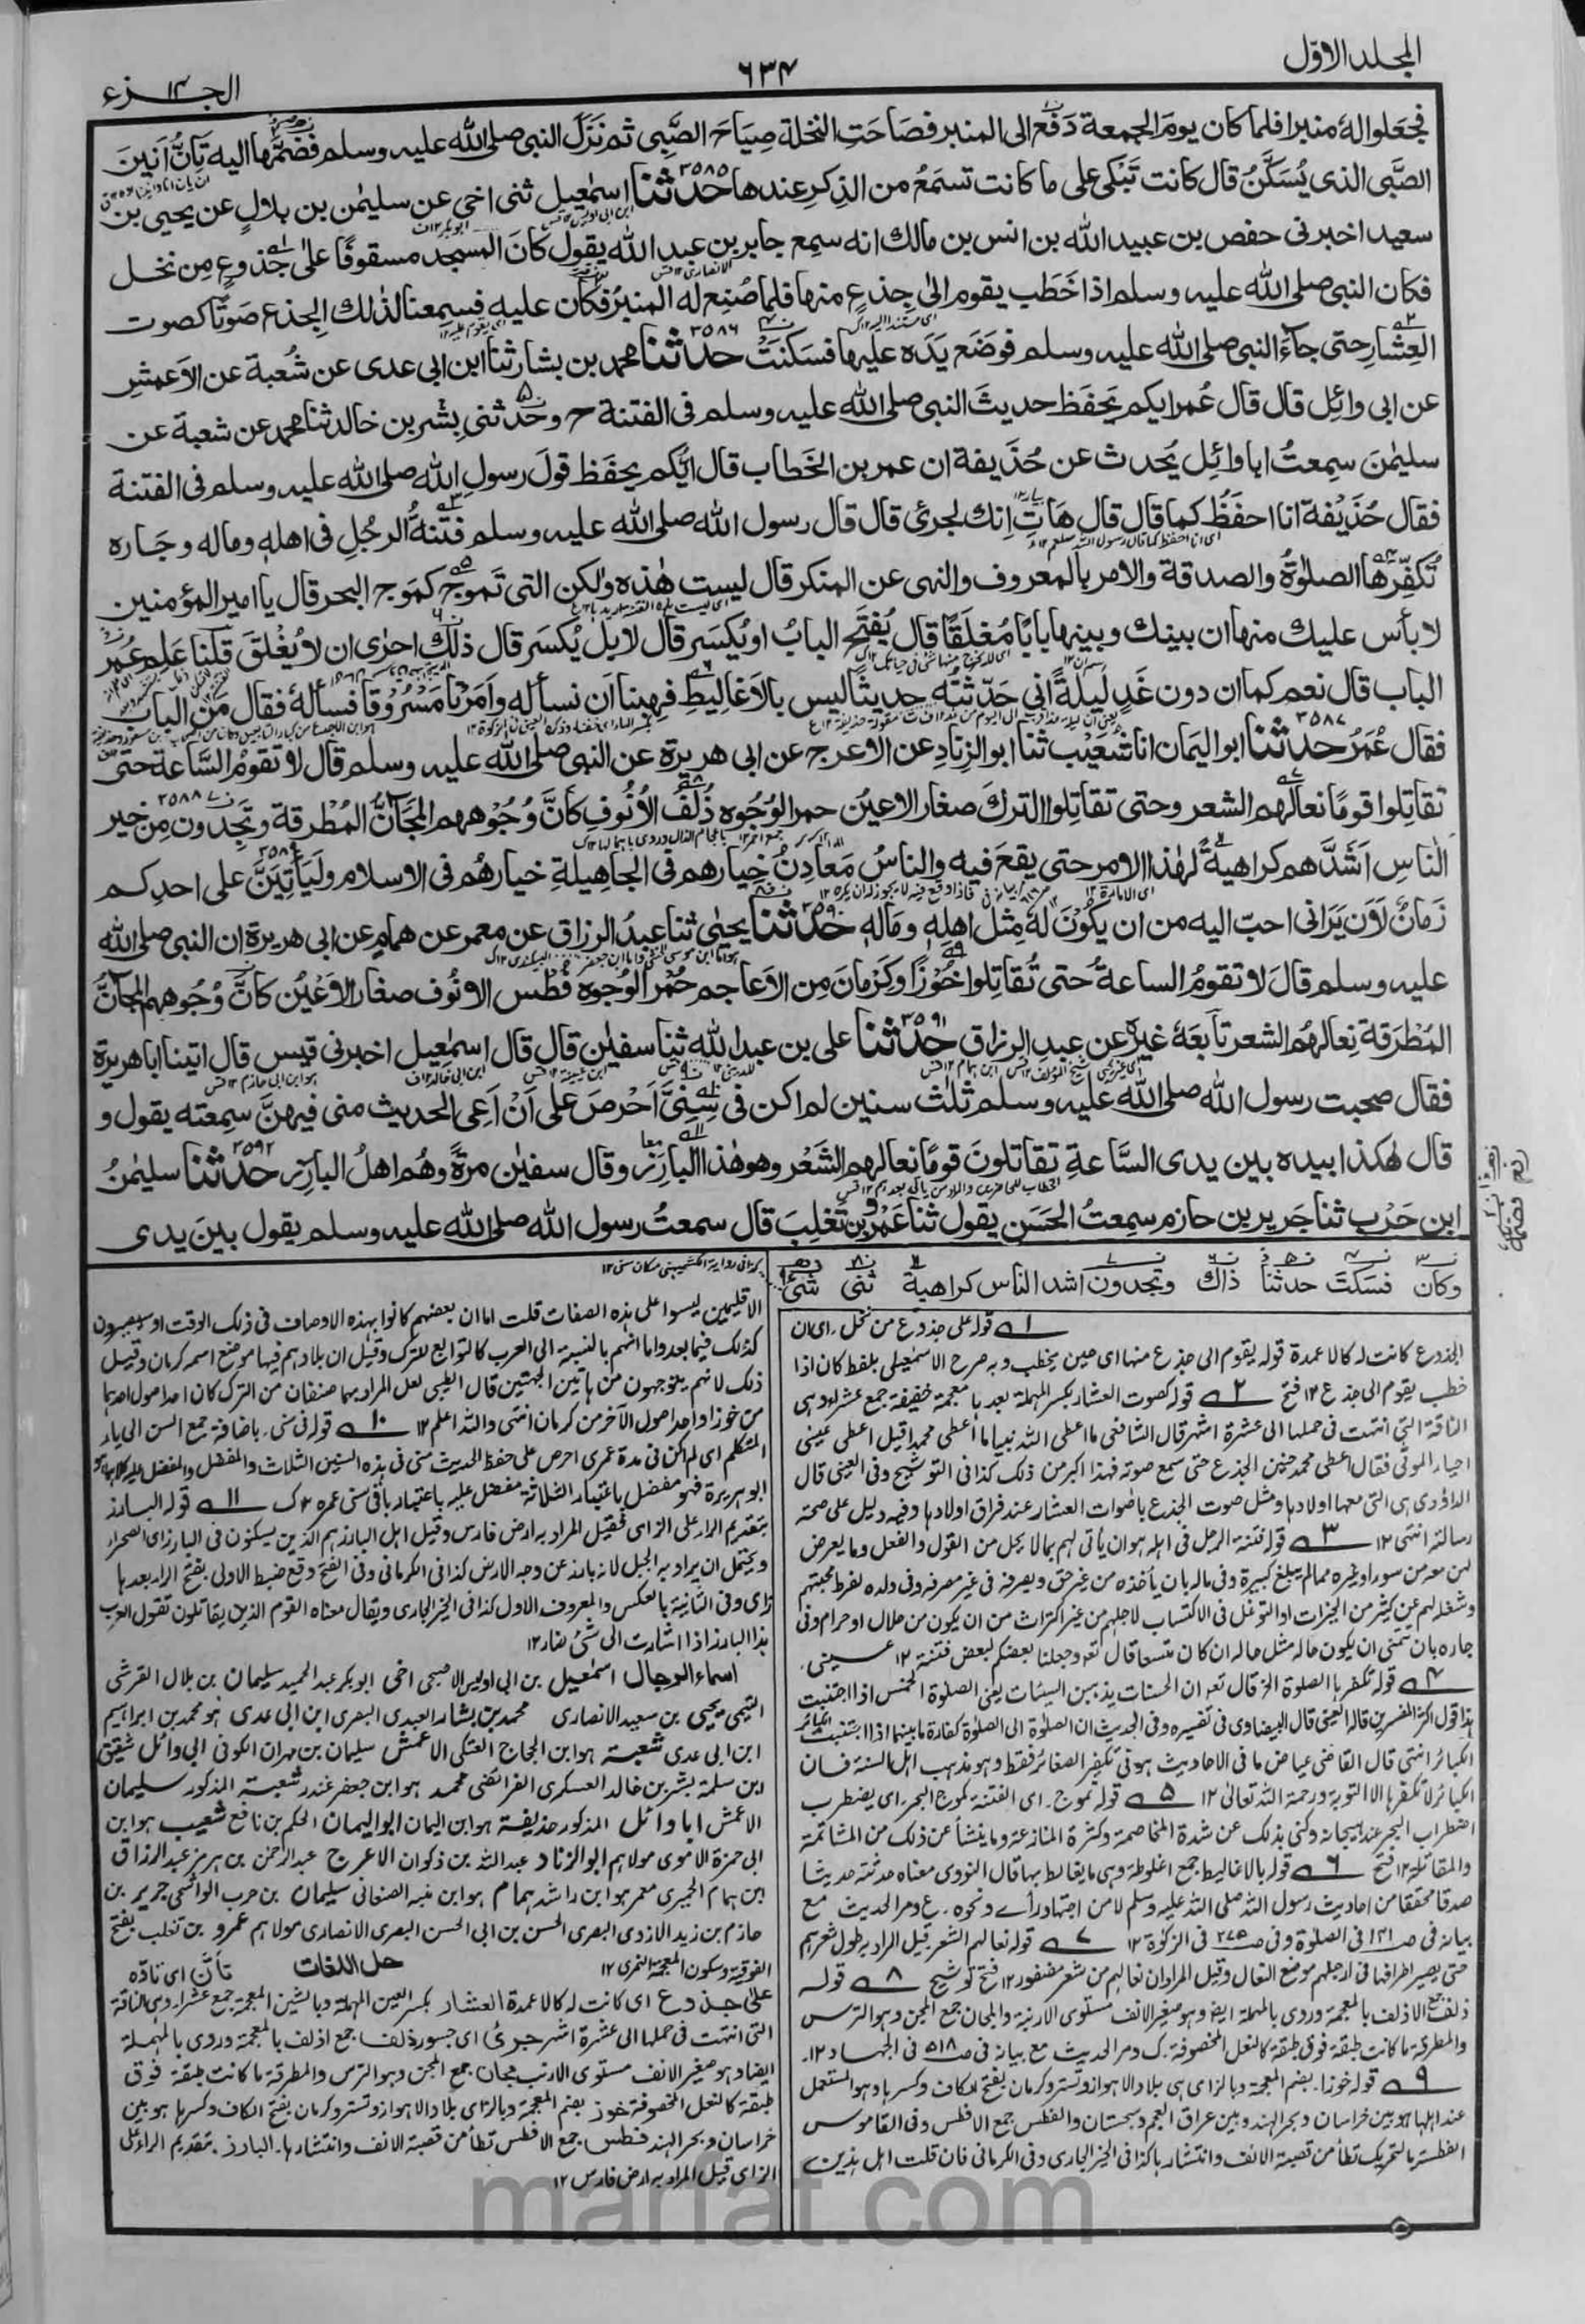 المجلد الاوّل
٦٣٤
الجزء ١٤
فجعلوا لهٗ منبرا فلما كان يومَ الجمعة دَفَعَ الى المنبر فصَاحَتِ النخلة صِيَاحَ الصَّبِى ثم نَزَلَ النبى صلى الله عليه وسلم فضَمَّها اليه تَاِنُّ اَنِينَ
الصَّبِى الذى يُسَكَّنُ قال كانت تَبْكى على ما كانت تسمَعُ من الذِكرِ عندها ٣٥٨٥ حدثنا اسمٰعيل ثنى اخى عن سليمٰن بن بلالٍ عن يحيى بن
سعيد اخبرنى حفص بن عبيد الله بن انس بن مالك انه سمِع جابر بن عبد الله يقول كانَ المسجد مسقوفًا على جُذوعٍ مِن نخل
فكان النبى صلى الله عليه وسلم اذا خَطَب يقوم الىٰ جِذعٍ منها فلما صُنِع له المنبرُ فكان عليه فسمِعنا لذٰلك الجِذع صَوتًا كصوت
العِشارِ حتى جآءَ النبى صلى الله عليه وسلم فوضَع يَدَه عليها فسَكنَتْ ٣٥٨٦ حدثنا محمد بن بشار ثنا ابن ابى عدى عن شُعبة عن الاَعمشِ
عن ابى وائِل قال قال عُمر ايكم يَحفَظ حديثَ النبى صلى الله عليه وسلم فى الفتنة ح وحدثنى بِشر بن خالد ثنا محمد عن شعبة عن
سليمٰن سمِعتُ ابا وائِل يُحدث عن حُذَيفة ان عمر بن الخطاب قال ايُّكم يحفَظ قولَ رسولِ الله صلى الله عليه وسلم فى الفتنة
فقال حُذَيْفة انا احفَظُ كما قال قال هَاتِ اِنك لجرئ قال قال رسول الله صلى الله عليه وسلم فتنةُ الرجُلِ فى اهلهٖ وماله وجَاره
تُكفِّرها الصلوٰةُ والصدقة والامر بالمعروف والنهى عن المنكر قال ليست هٰذه ولٰكن التى تَموج كمَوج البحر قال يا امير المؤمنين
لا بأس عليك منها ان بينك وبينها بابًا مُغلَقًا قال يُفتَح البابُ او يُكسَر قال لا بل يُكسَر قال ذٰلك احرٰى ان لا يُغْلَقَ قلنا عَلِم عُمر
الباب قال نعم كما ان دون غَدٍ لَيلةً انى حَدّثتُه حديثًا ليس بالاَغاليطِ فهِبنا اَن نسأله واَمَرنا مَسْرُوقًا فسألهٗ فقال مَن الباب
فقال عُمَرُ ٣٥٨٧ حدثنا ابو اليَمان انا شُعَيْب ثنا ابو الزِنادِ عن الاعرج عن ابى هريرة عن النبى صلى الله عليه وسلم قال لا تقومُ السَّاعة حتى
تقاتِلوا قومًا نعالُهم الشعر وحتى تقاتِلوا التركَ صغارَ الاعيُن حمر الوُجُوه ذُلْفَ الاُنُوفِ كأنَّ وُجُوههم المَجَانُّ المُطْرقة ٣٥٨٨ وتَجِدون مِن خير
الناسِ اَشَدَّهم كراهيةً لهٰذا الامر حتى يقعَ فيه والناسُ مَعادِنُ خِيارهم فى الجاهِيلةِ خيارهُم فى الاسلام ٣٥٨٩ ولَيَأتِيَنَّ على احدِكم
زَمانٌ لَاَن يَرَانى احبّ اليه من ان يكُوْنَ لهٗ مِثل اهلِهٖ ومَالِهٖ ٣٥٩٠ حدثنا يحيىٰ ثنا عبدُ الرزاق عن معمر عن همامٍ عن ابى هريرة ان النبى صلى الله
عليه وسلم قالَ لا تقومُ الساعةُ حتى تُقاتِلوا خُوْزًا وكَرْمانَ مِن الاَعاجم حُمْرَ الوُجوه فُطْس الانُوف صغار الاَعْيُن كأنَّ وُجُوههم المَجَانُّ
المُطْرَقة نِعالُهُم الشعر تابَعَهٗ غيرُه عن عبدِ الرزاق ٣٥٩١ حدثنا على بن عبد الله ثنا سفيٰن قال قال اسمٰعيل اخبرنى قيس قال اتينا ابا هريرة
فقال صحِبت رسول الله صلى الله عليه وسلم ثلٰث سنين لم اكن فى سِنِىَّ اَحْرصَ على اَنْ اَعِى الحديث منى فيهنَّ سمِعته يقول و
قال هٰكذا بيده بين يدى السَّاعةِ تقاتلونَ قومًا نعالهم الشَعْر وهو هٰذا البارز وقال سفيٰن مرةً وهُم اهلُ البازر ٣٥٩٢ حدثنا سليمٰنُ
ابن حَرْب ثنا جَرير بن حازم سمِعتُ الحَسَن يقول ثنا عَمْرو بن تَغلِبَ قال سمعتُ رسول الله صلى الله عليه وسلم يقول بينَ يدى
وكان فسكت حدثنا ذاك وتجدون اشد الناس كراهية ثنى شئ
١ قوله على جذوع من نخل. اى ان
الجذوع كانت له كالاعمدة قوله يقوم الى جذع منها اى حين يخطب وبه صرح الاسمعيلى بلفظ كان اذا
خطب يقوم الى جذع ١٢ فتح ٢ قوله كصوت العشار بكسر المهملة بعدها معجمة خفيفة جمع عشراء وهى
الناقة التى انتهت فى حملها الى عشرة اشهر قال الشافعى ما اعطى الله نبيا ما اعطى محمدا قيل اعطى عيسى
احياء الموتى فقال اعطى محمد حنين الجذع حتى سمع صوته فهذا اكبر من ذلك كذا فى التوشيح وفى العينى قال
الداؤدى هى التى معها اولادها ومثل صوت الجذع باصوات العشار عند فراق اولادها وفيه دليل على صحة
رسالته انتهى ١٢ ٣ قوله فتنة الرجل فى اهله هو ان يأتى لهم بما لا يحل من القول والفعل وما يعرض
لهن معه من سوء او غيره مما لم يبلغ كبيرة وفى ماله بان يأخذه من غير حق ويصرفه فى غير مصرفه وفى ولده لفرط محبتهم
وشغله بهم عن كثير من الخيرات او التوغل فى الاكتساب لاجلهم من غير اكتراث من ان يكون من حلال او حرام وفى
جاره بان يتمنى ان يكون حاله مثل حاله ان كان متسعا قال تعه وجعلنا بعضكم لبعض فتنة ١٢ عينى.
٤ قوله تكفرها الصلوة الخ قال تعه ان الحسنات يذهبن السيئات يعنى الصلوة الخمس اذا اجتنبت
هذا قول اكثر المفسرين قاله العينى قال البيضاوى فى تفسيره وفى الحديث ان الصلوة الى الصلوة كفارة ما بينهما اذا اجتنبت
الكبائر انتهى قال القاضى عياض ما فى الاحاديث هو فى تكفير الصغائر فقط وهو مذهب اهل السنة فان
الكبائر لا تكفرها الا التوبة ورحمة الله تعالى ١٢ ٥ قوله تموج. اى الفتنة كموج البحر. اى يضطرب
اضطراب البحر عند هيجانه وكنى بذلك عن شدة المخاصمة وكثرة المنازعة وما ينشأ عن ذلك من المشاتمة
والمقاتلة ١٢ فتح ٦ قوله بالاغاليط جمع اغلوطة وهى ما يغالط بها قال النووى معناه حدثته حديثا
صدقا محققا من احاديث رسول الله صلى الله عليه وسلم لا من اجتهاد رأى ونحوه. ع ومر الحديث مع
بيانه فى ص ١٣١ فى الصلوة وفى ص ٢٧٥ فى الزكوة ١٢ ٧ قوله نعالهم الشعر قيل المراد به طول شعرهم
حتى يصير اطرافها فى ارجلهم موضع النعال وقيل المراد ان نعالهم من شعر مضفور ١٢ فتح توشيح ٨ قوله
ذلف جمع الاذلف بالمعجمة وروى بالمهملة ايضا وهو صغير الانف مستوى الارنبة والمجان جمع المجن وهو الترس
والمطرقة ما كانت طبقة فوق طبقة كالنعل المخصوفة. ك ومر الحديث مع بيانه فى ص ٥١٨ فى الجهاد ١٢.
٩ قوله خوزا. بضم المعجمة وبالزاى هى بلاد الاهواز وتستر وكرمان بفتح الكاف وكسرها وهو المستعمل
عند اهلها هو بين خراسان وبحر الهند وبين عراق العجم وسجستان والفطس جمع الافطس وفى القاموس
الفطسة بالتحريك تطأمن قصبة الانف وانتشارها كذا فى الخير الجارى وفى الكرمانى فان قلت اهل هذين
الاقليمين ليسوا على هذه الصفات قلت اما ان بعضهم كانوا بهذه الاوصاف فى ذلك الوقت او سيصيرون
كذلك فيما بعد واما انهم بالنسبة الى العرب كالتوابع للترك وقيل ان بلادهم فيها موضع اسمه كرمان وقيل
ذلك لانهم يتوجهون من هاتين الجهتين قال الطيبى لعل المراد بهما صنفان من الترك كان احد اصول احدهما
من خوز واحد اصول الآخر من كرمان انتهى والله اعلم ١٢ ١٠ قوله فى سنى. باضافة جمع السن الى ياء
المتكلم اى لم اكن فى مدة عمرى احرص على حفظ الحديث منى فى هذه السنين الثلاث والمفضل والمفضل عليه كلاهما هو
ابو هريرة فهو مفضل باعتبار الثلاثة مفضل عليه باعتبار باقى سنى عمره ١٢ ك ١١ قوله البارز
بتقديم الراء على الزاى فقيل المراد به ارض فارس وقيل اهل البارز هم الذين يسكنون فى البارز اى الصحراء
ويحتمل ان يراد به الجبل لانه بارز عن وجه الارض كذا فى الكرمانى وفى الفتح وقع ضبط الاولى بفتح الراء بعدها
زاى وفى الثانية بالعكس والمعروف الاول كذا فى الخير الجارى ويقال معناه القوم الذين يقاتلون تقول العرب
هذا البارز اذا اشارت الى شئ ضار ١٢
اسماء الرجال اسمٰعيل بن ابى اويس الاصبحى اخى ابو بكر عبد الحميد سليمان بن بلال القرشى
التيمى يحيى بن سعيد الانصارى محمد بن بشار العبدى البصرى ابن ابى عدى هو محمد بن ابراهيم
ابن ابى عدى شعبة هو ابن الحجاج العتكى الاعمش سليمان بن مهران الكوفى ابى وائل شقيق
ابن سلمة بشر بن خالد العسكرى الفرائضى محمد هو ابن جعفر غندر شعبة المذكور سليمان
الاعمش ابا وائل المذكور حذيفة هو ابن اليمان ابو اليمان الحكم بن نافع شعيب هو ابن
ابى حمزة الاموى مولاهم ابو الزناد عبد الله بن ذكوان الاعرج عبد الرحمن بن هرمز عبد الرزاق
ابن همام الحميرى معمر هو ابن راشد همام هو ابن منبه الصنعانى سليمان بن حرب الواشحى جرير بن
حازم بن زيد الازدى البصرى الحسن بن ابى الحسن البصرى الانصارى مولاهم عمرو بن تغلب بفتح
الفوقية وسكون المعجمة النمرى ١٢ حل اللغات تأنّ اى تاده
على جذوع اى كانت له كالاعمدة العشار بكسر العين المهملة وبالشين المعجمة جمع عشراء وهى الناقة
التى انتهت فى حملها الى عشرة اشهر جرئ اى جسور ذلف جمع اذلف بالمعجمة وروى بالمهملة
ايضا وهو صغير الانف مستوى الارنبة مجان جمع المجن وهو الترس والمطرقة ما كانت طبقة فوق
طبقة كالنعل المخصوفة خوز بضم المعجمة وبالزاى بلاد الاهواز وتستر وكرمان بفتح الكاف وكسرها هو بين
خراسان وبحر الهند فطس جمع الافطس تطأمن قصبة الانف وانتشارها. البارز. بتقديم الراء على
الزاى قيل المراد به ارض فارس ١٢
marfat.com